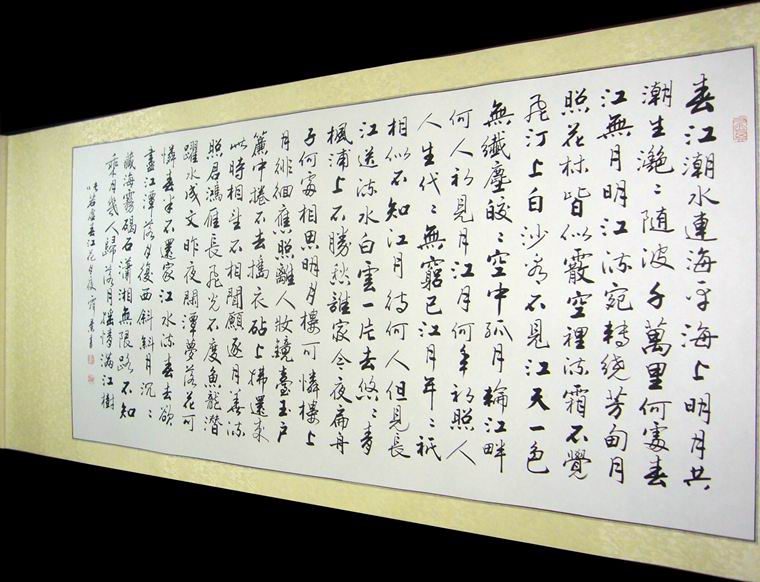 春江潮水連海平海上明月共
潮生灧〻随波千萬里何處春
江無月明江流宛轉绕芳甸月
照花林皆似霰空裡流霜不覺
飛汀上白沙看不見江天一色
無纖塵皎〻空中孤月輪江畔
何人初見月江月何年初照人
人生代〻無窮已江月年〻祇
相似不知江月待何人但見長
江送流水白雲一片去悠〻青
楓浦上不勝愁誰家今夜扁舟
子何處相思明月樓可憐樓上
月徘徊應照離人妝鏡臺玉户
簾中捲不去搗衣砧上拂還來
此時相望不相聞願逐月華流
照君鴻雁長飛光不度魚龍潛
躍水成文昨夜閒潭夢落花可
憐春半不還家江水流春去欲
盡江潭落月復西斜斜月沉〻
藏海霧碣石瀟湘無限路不知
乘月幾人歸落月搖情滿江樹
若虚春江花月夜 書